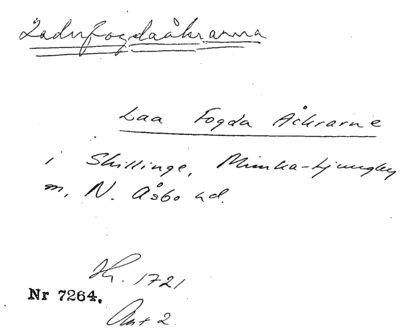 Ladufogdaåkrarna
Laa Fogda Åkrarne
i Skillinge, Munka-Ljungby
m, N. Åsbo hd.
Hr. 1721
Nr 7264.
Akt 2